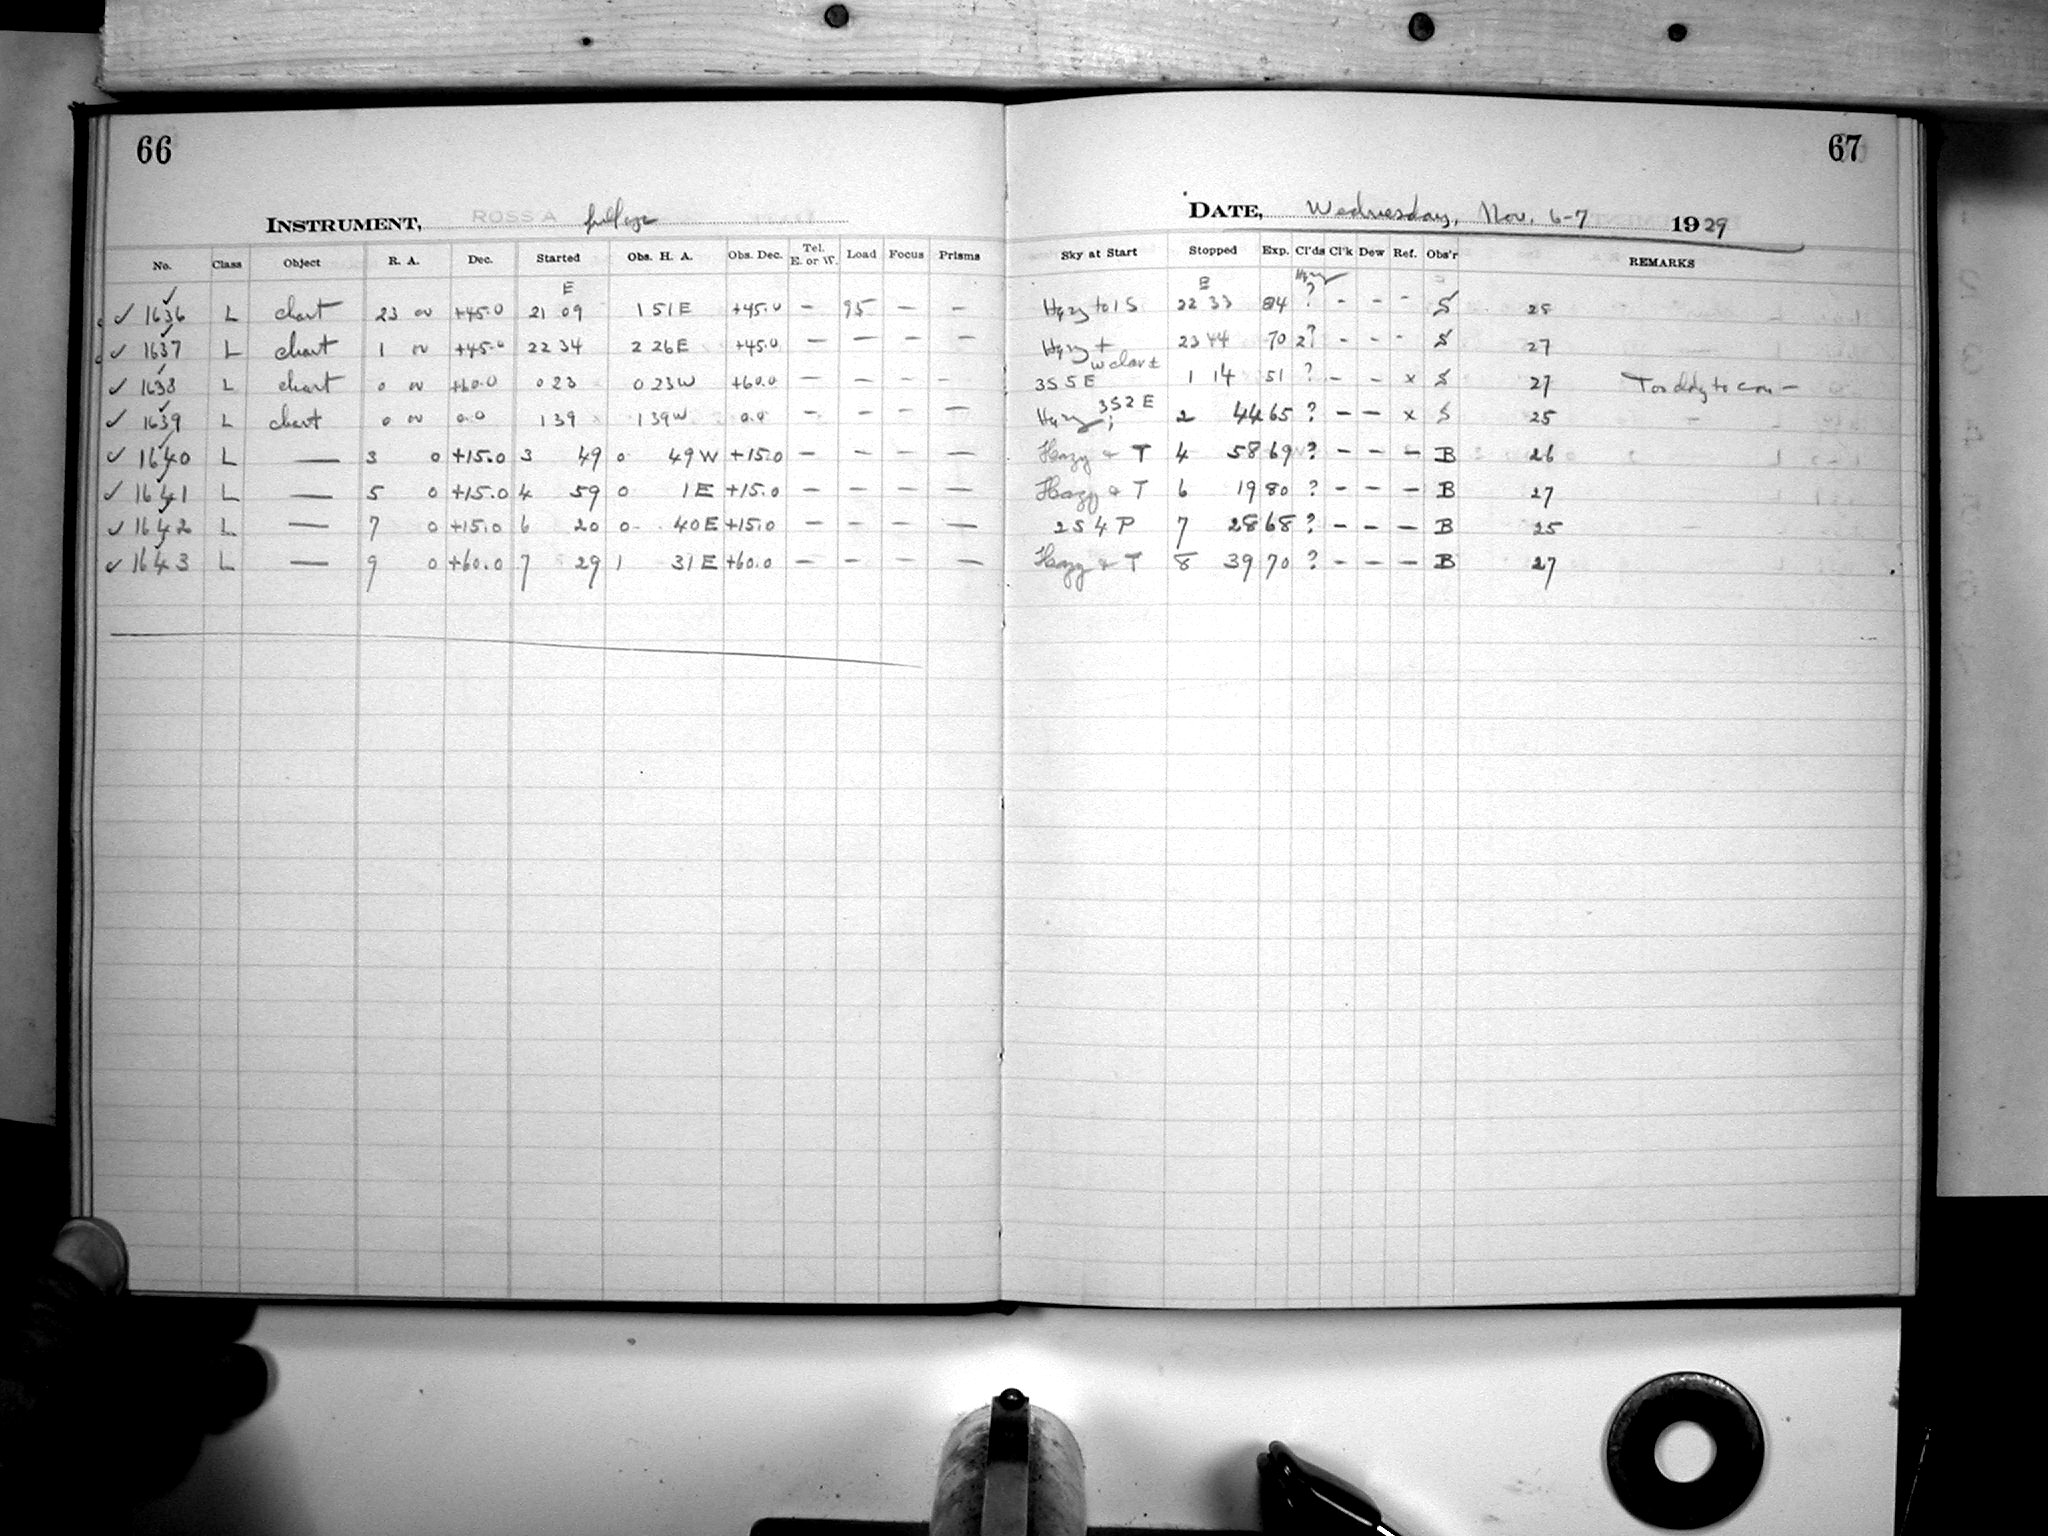 66
67
INSTRUMENT, ROSS A
DATE, Wednesday, Nov. 6-7 1929
No. Class Object R. A. Dec. Started Obs. H. A. Obs. Dec. Tel. E. or W. Load Focus Prisms Sky at Start Stopped Exp. Cl'ds Cl'k Dew Ref. Obs'r REMARKS
E E Hazy
✓ 1636 L chart 23 +45.0 21 09 1 51 E +45.0 — 95 — — Hazy to 1 S 22 33 84 ? - - - S 25
✓ 1637 L chart 1 +45.0 22 34 2 26 E +45.0 — — — — Hazy + 23 44 70 2? - - - S 27
✓ 1638 L chart 0 +60.0 0 23 0 23 W +60.0 — — — - 3 S 5 E 1 14 51 ? - - x S 27
✓ 1639 L chart 0 0.0 1 39 1 39 W 0.0 — — — — Hazy; 3 S 2 E 2 44 65 ? — — x S 25
✓ 1640 L — 3 0 +15.0 3 49 0 49 W +15.0 — — — — Hazy & T 4 58 69 ? — — — B 26
✓ 1641 L — 5 0 +15.0 4 59 0 1 E +15.0 — — — — Hazy & T 6 19 80 ? — — — B 27
✓ 1642 L — 7 0 +15.0 6 20 0 40 E +15.0 — — — — 2 S 4 P 7 28 68 ? — — — B 25
✓ 1643 L — 9 0 +60.0 7 29 1 31 E +60.0 — — — — Hazy & T 8 39 70 ? — — — B 27